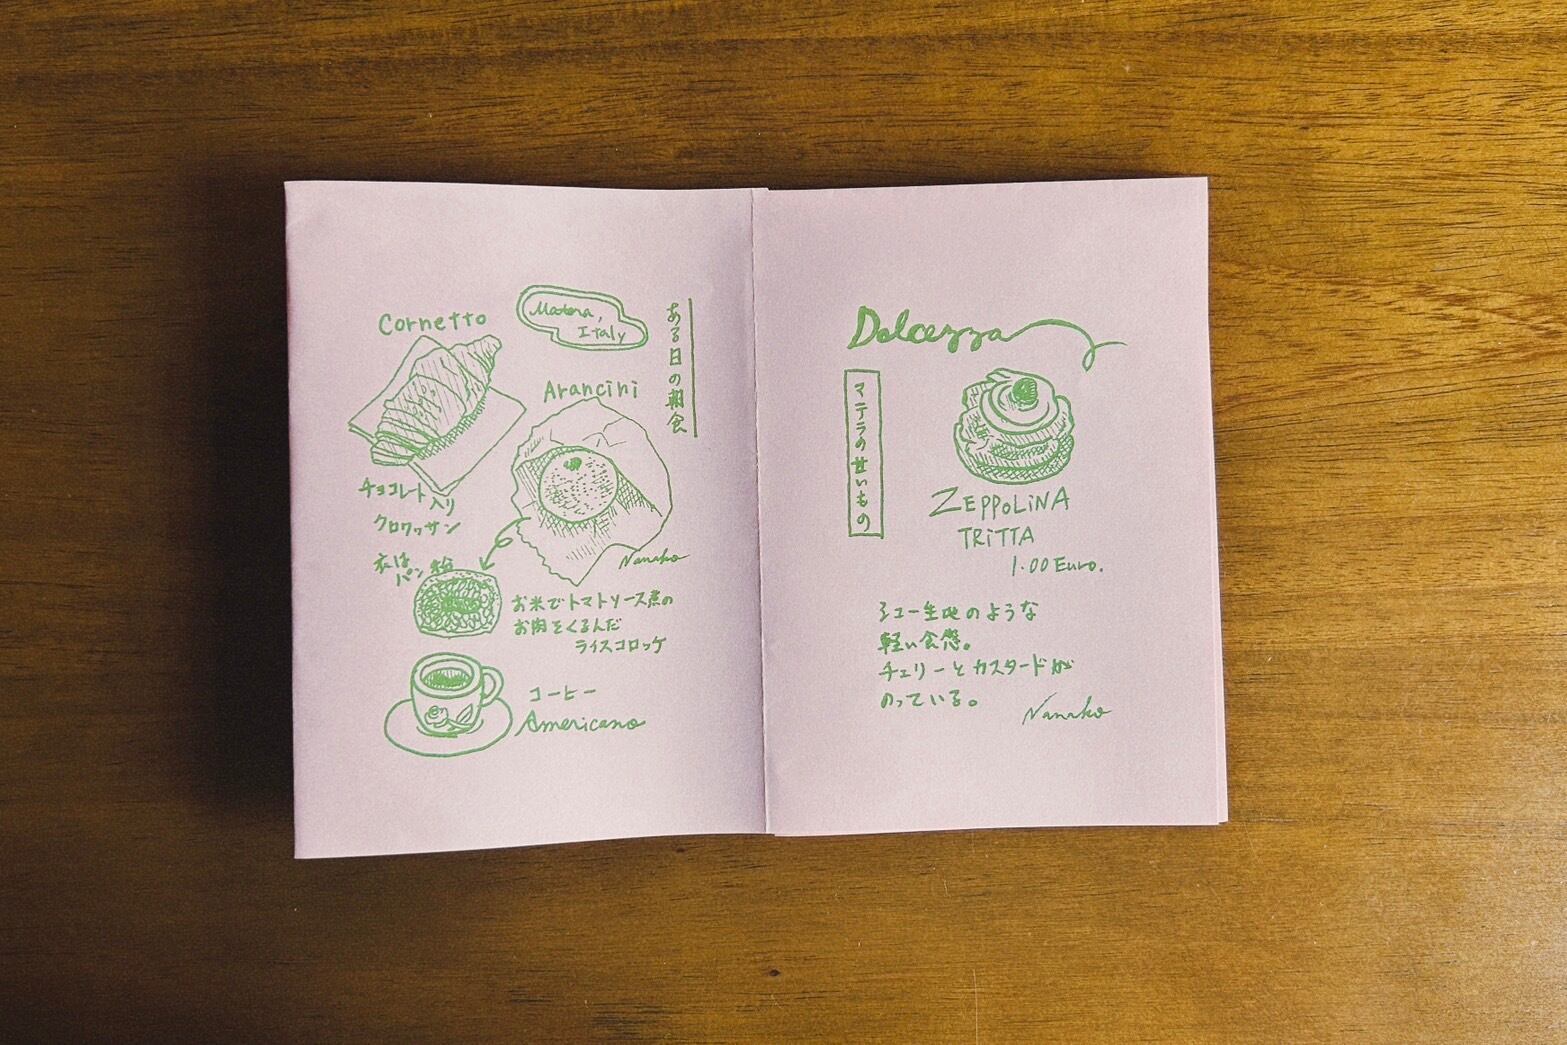 ある日の朝食
Matera,
Italy
Cornetto
チョコレート入り
クロワッサン
Arancini
Nanako
衣は
パン粉
お米でトマトソース煮の
お肉をくるんだ
ライスコロッケ
コーヒー
Americano
Dolcezza
マテラの甘いもの
ZEPPOLiNA
TRiTTA
1.00 Euro.
シュー生地のような
軽い食感。
チェリーとカスタードが
のっている。
Nanako